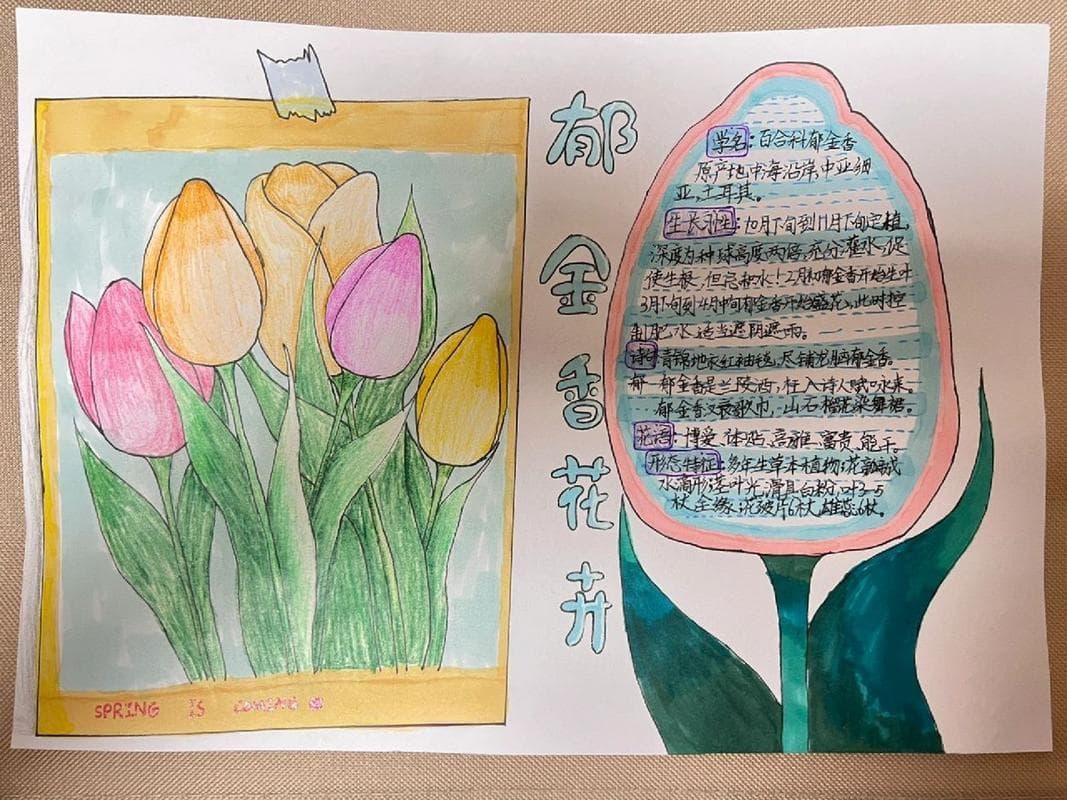 SPRING IS COMING
郁
金
香
花
卉
学名:百合科郁金香
原产地中海沿岸,中亚细
亚,土耳其。
生长习性:10月下旬到11月下旬定植,
深度为种球高度两倍,充分灌水,促
使生根,但忌积水!2月郁金香开始生叶
3月下旬到4月中旬郁金香开始盛花,此时控
制肥水适当遮阴遮雨。
诗句青锦地衣红袖毯,尽铺龙脑郁金香。
郁金香是兰陵酒,枉入诗人赋咏来。
郁金香汉裛歌巾,山石榴花染舞裙。
花语:博爱、体贴、高雅、富贵、能干。
形态特征:多年生草本植物,
水滴形 叶光滑具白粉,叶3-5
枚,全缘, 6枚,雄蕊6枚。